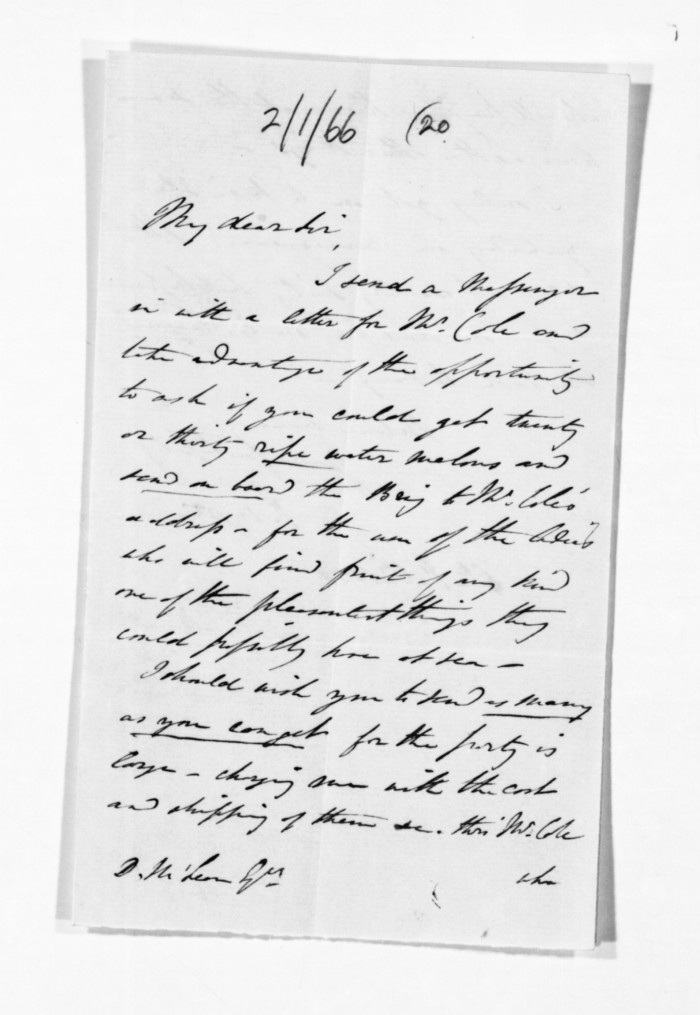 2/1/66 (20.
My dear Sir,
I send a Messenger
in with a letter for Mr. Cole and
take advantage of the opportunity
to ask if you could get twenty
or thirty ripe water melons and
send on board the Brig to Mr. Cole's
address - for the use of the ladies
who will find fruit of any kind
one of the pleasantest things they
could possibly have at sea -
I should wish you to send as many
as you can get for the party is
large - charging me with the cost
and shipping of them &c. thro' Mr. Cole
D. McLean Esqr.
who